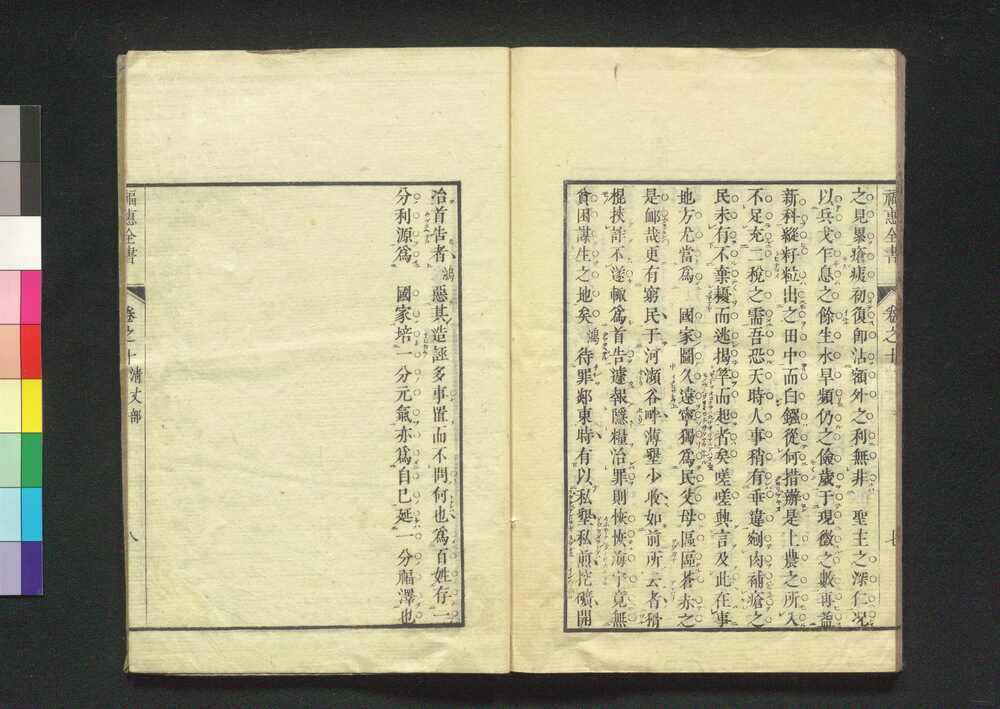 福惠全書 卷之十
之見纍瘡痍初復卽沾額外之利無非 聖主之深仁况
以兵戈乍息之餘生水旱頻仍之儉歲于現徵之數再益
新科縱籽粒出之田中而白鏹從何措辦是上農之所入
不足充二稅之需吾恐天時人事稍有乖違剜肉補瘡之
民未有不棄擾而逃揭竿而起者矣嗟嗟興言及此在事
地方尤當爲 國家圖久遠寧獨爲民父母區區蒼赤之
是䘏哉更有窮民于河瀕谷畔薄墾少收如前所云者猾
棍挾詐不遂輙爲首告遽報隱糧治罪則恢恢海宇竟無
貧困謀生之地矣 鴻 待罪郯東時有以私墾私煎挖礦開
治首告者 鴻 惡其造誣多事置而不問何也爲百姓存一
分利源爲 國家培一分元氣亦爲自己延一分福澤也
福惠全書 卷之十 清丈部 八